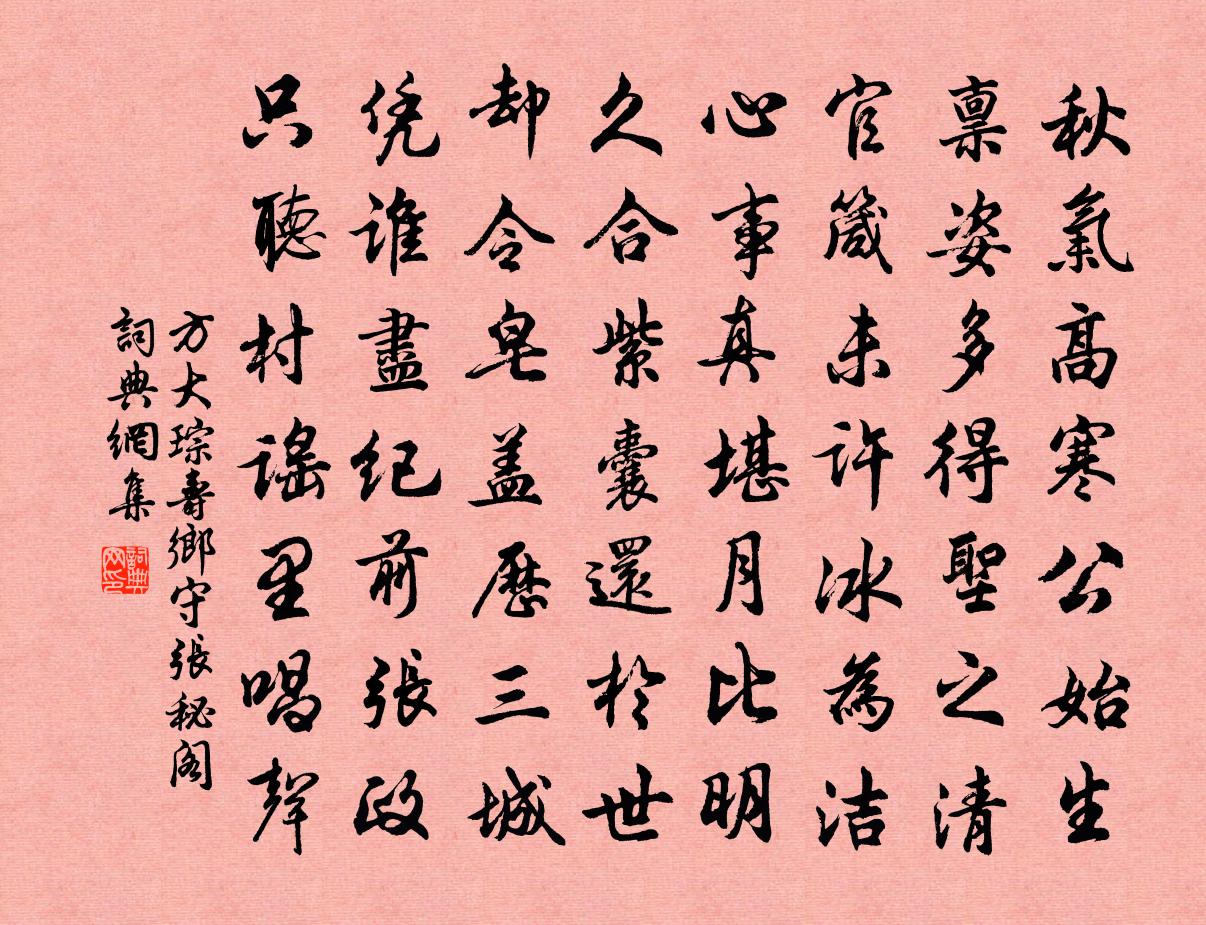 秋氣高寒公始生
稟姿多得聖之清
官箴未許冰為潔
心事真堪月比明
久合紫囊還於世
却令皂盖歷三城
凭誰盡紀前張政
只聽村謡里唱聲
方大琮壽鄉守張秘阁
詞典網集
詞典网印